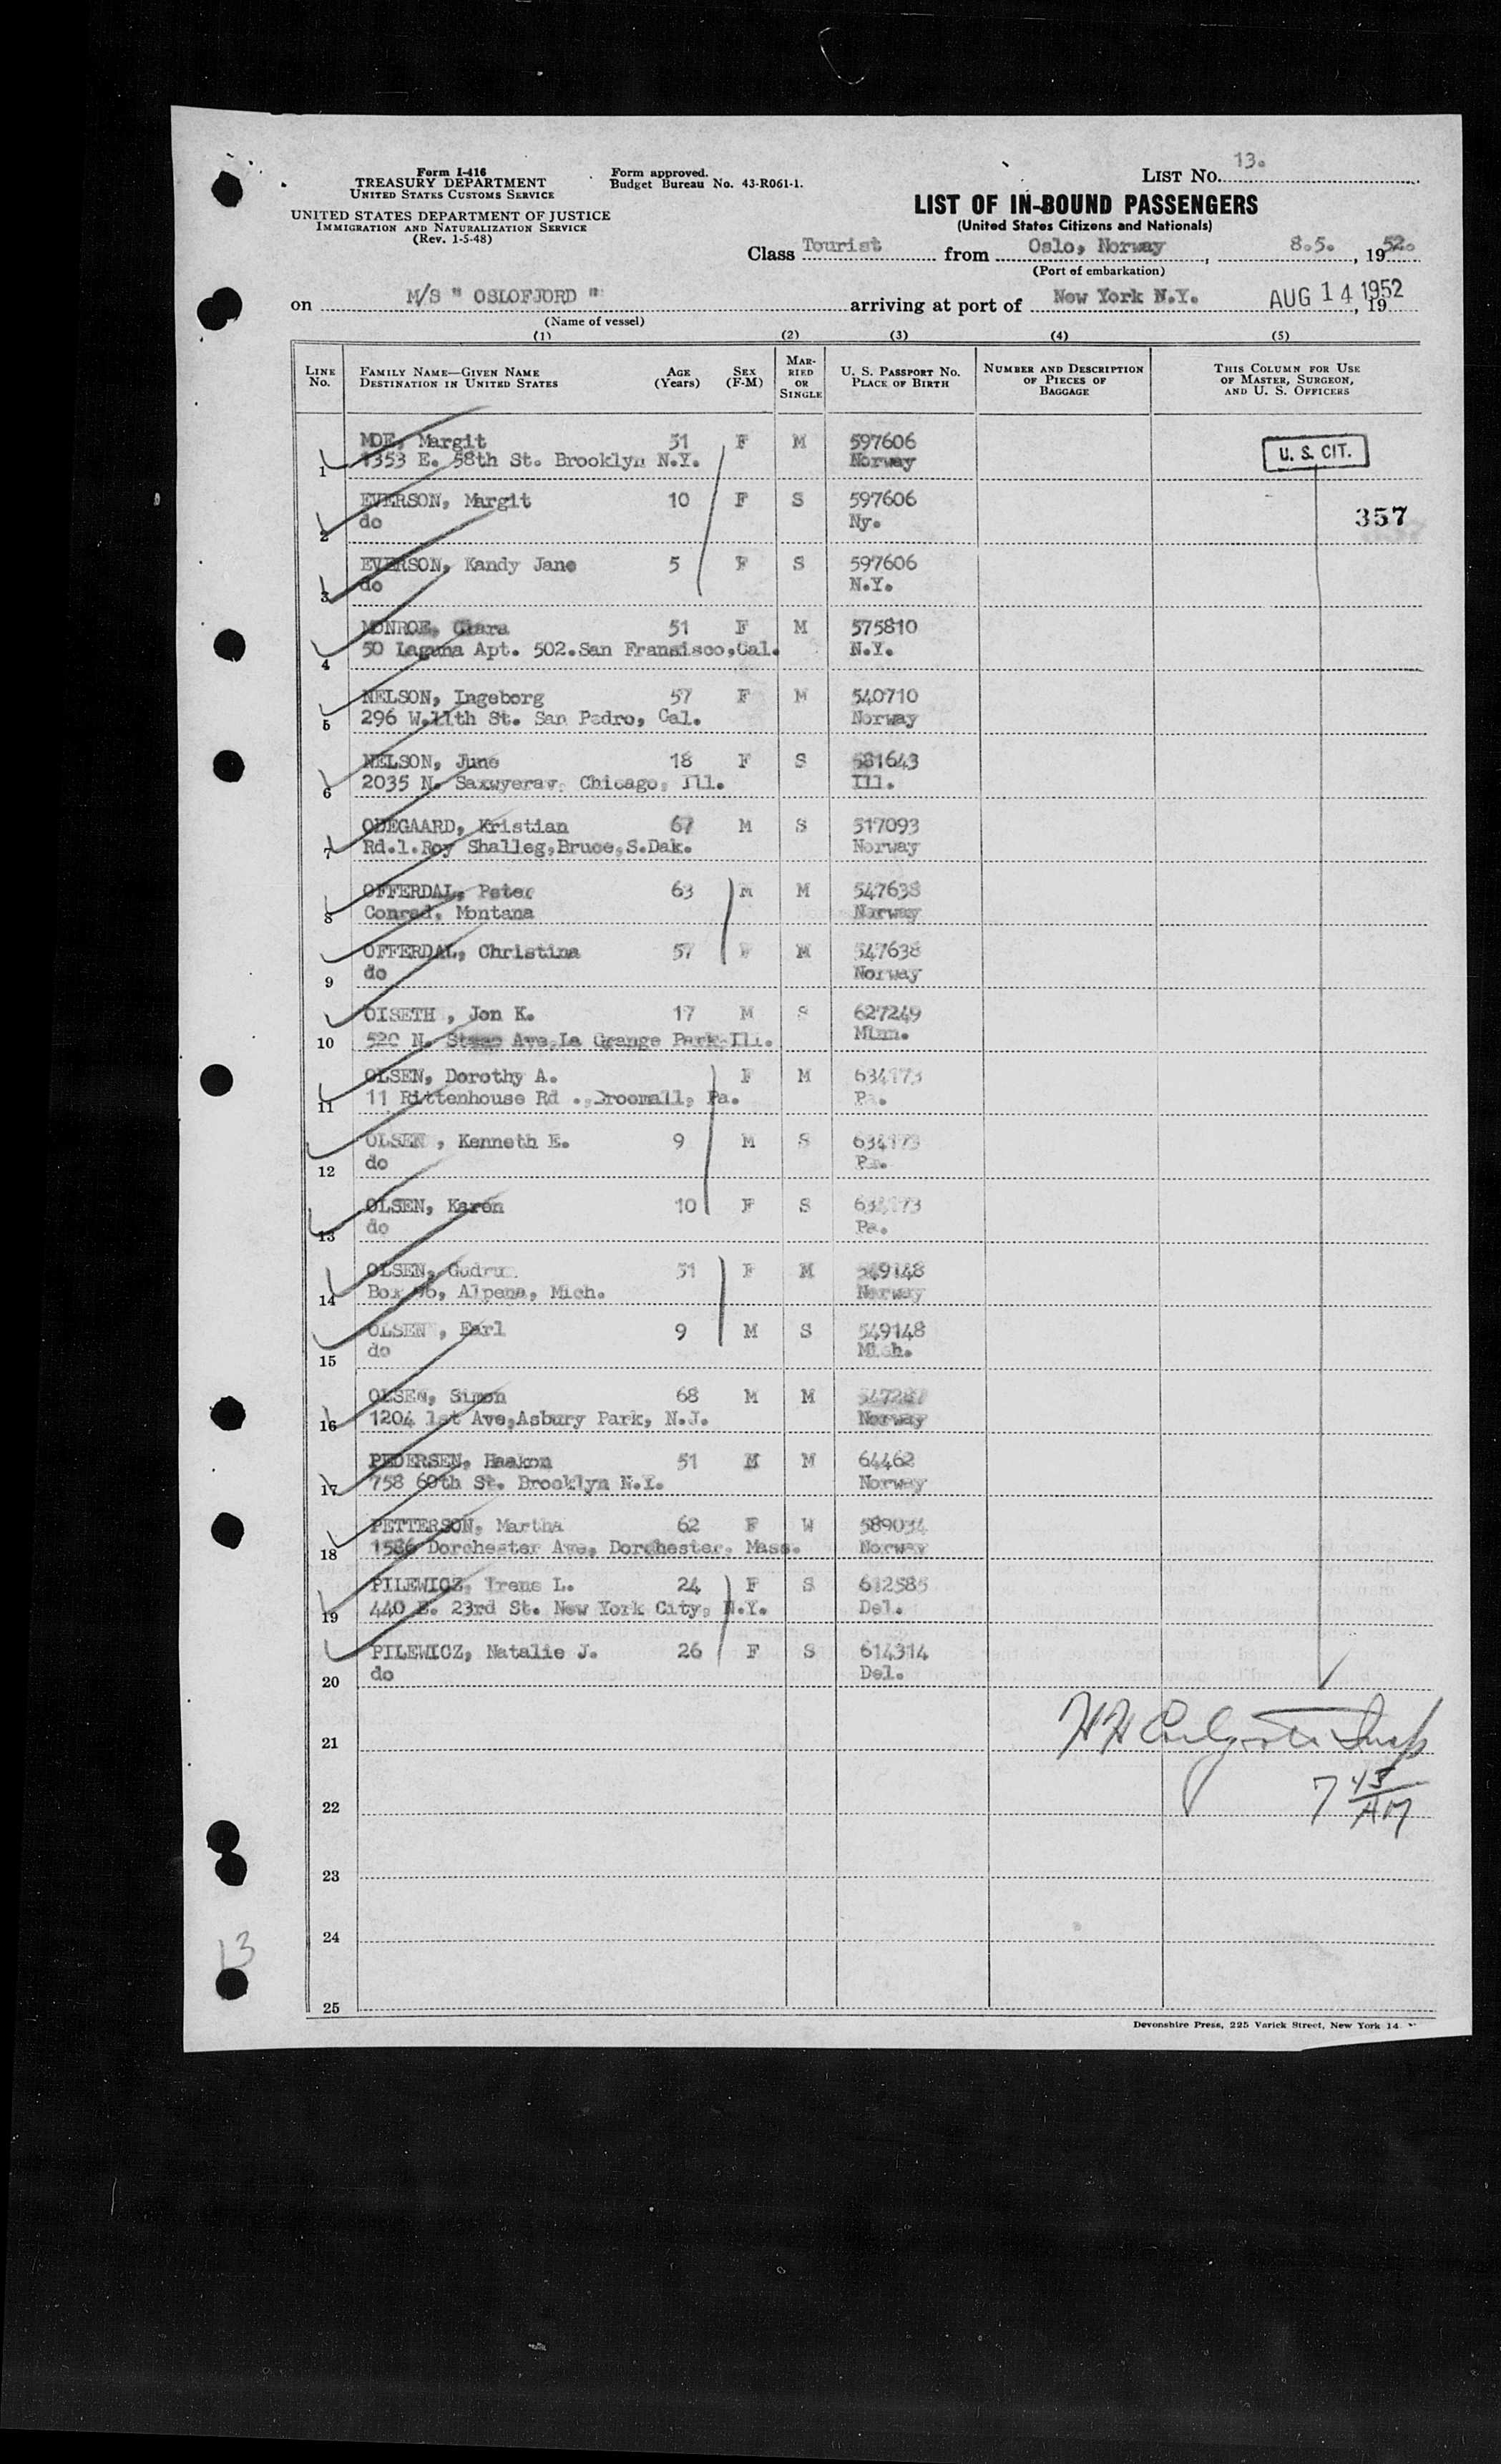 13.
Form I-416
TREASURY DEPARTMENT
UNITED STATES CUSTOMS SERVICE
UNITED STATES DEPARTMENT OF JUSTICE
IMMIGRATION AND NATURALIZATION SERVICE
(Rev. 1-5-48)
Form approved.
Budget Bureau No. 43-R061-1.
LIST NO.
LIST OF IN-BOUND PASSENGERS
(United States Citizens and Nationals)
Class Tourist from Oslo, Norway, 8.5., 1952.
(Port of embarkation)
on M/S " OSLOFJORD " arriving at port of New York N.Y. AUG 14 1952, 19
(Name of vessel)
(1) (2) (3) (4) (5)
LINE No. FAMILY NAME—GIVEN NAME DESTINATION IN UNITED STATES AGE (Years) SEX (F-M) MARRIED OR SINGLE U. S. PASSPORT NO. PLACE OF BIRTH NUMBER AND DESCRIPTION OF PIECES OF BAGGAGE THIS COLUMN FOR USE OF MASTER, SURGEON, AND U. S. OFFICERS
MOE, Margit 51 F M 597606 U. S. CIT.
1 1353 E. 58th St. Brooklyn N.Y. Norway
EVERSON, Margit 10 F S 597606 357
2 do Ny.
EVERSON, Kandy Jane 5 F S 597606
3 do N.Y.
MONROE, Clara 51 F M 575810
4 50 Laguna Apt. 502.San Fransisco,Cal. N.Y.
NELSON, Ingeborg 57 F M 540710
5 296 W.11th St. San Pedro, Cal. Norway
NELSON, June 18 F S 581643
6 2035 N. Saxwyerav. Chicago, Ill. Ill.
ODEGAARD, Kristian 67 M S 517093
7 Rd.1.Roy Shalleg,Bruce,S.Dak. Norway
OFFERDAL, Peter 63 M M 547638
8 Conrad, Montana Norway
OFFERDAL, Christina 57 F M 547638
9 do Norway
OISETH , Jon K. 17 M S 627249
10 520 N. Ave,La Grange Park Ill. Minn.
OLSEN, Dorothy A. F M 634173
11 11 Rittenhouse Rd ., Broomall, Pa. Pa.
OLSEN , Kenneth E. 9 M S 634173
12 do Pa.
OLSEN, Karen 10 F S 634173
13 do Pa.
OLSEN, Gudrun 51 F M 549148
14 Box 96, Alpena, Mich. Norway
OLSEN , Earl 9 M S 549148
15 do Mich.
OLSEN, Simon 68 M M
16 1204 1st Ave,Asbury Park, N.J. Norway
PEDERSEN, Haakon 51 M M 64462
17 758 60th St. Brooklyn N.Y. Norway
PETTERSON, Martha 62 F W 589034
18 1586 Dorchester Ave, Dorchester, Mass. Norway
PILEWICZ, Irene L. 24 F S 612585
19 440 E. 23rd St. New York City, N.Y. Del.
PILEWICZ, Natalie J. 26 F S 614314
20 do Del.
21
22 7 45/AM
23
24
13
25
Devonshire Press, 225 Varick Street, New York 14